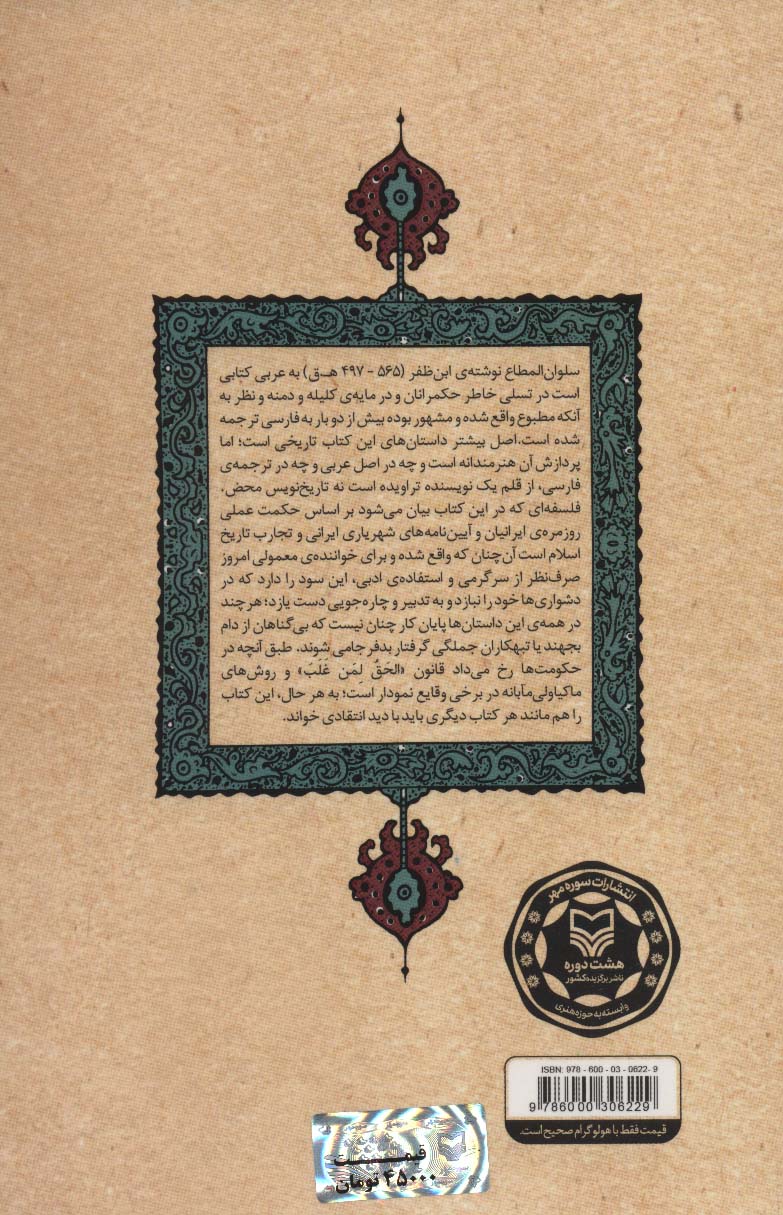 سلوان‌المطاع نوشته‌ی ابن‌ظفر (۵۶۵ - ۴۹۷ هـ.ق) به عربی کتابی
است در تسلی خاطر حکمرانان و در مایه‌ی کلیله و دمنه و نظر به
آنکه مطبوع واقع شده و مشهور بوده بیش از دو بار به فارسی ترجمه
شده است. اصل بیشتر داستان‌های این کتاب تاریخی است؛ اما
پردازش آن هنرمندانه است و چه در اصل عربی و چه در ترجمه‌ی
فارسی، از قلم یک نویسنده تراویده است نه تاریخ‌نویس محض.
فلسفه‌ای که در این کتاب بیان می‌شود بر اساس حکمت عملی
روزمره‌ی ایرانیان و آیین‌نامه‌های شهریاری ایرانی و تجارب تاریخ
اسلام است آن‌چنان که واقع شده و برای خواننده‌ی معمولی امروز
صرف‌نظر از سرگرمی و استفاده‌ی ادبی، این سود را دارد که در
دشواری‌ها خود را نبازد و به تدبیر و چاره‌جویی دست یازد؛ هر چند
در همه‌ی این داستان‌ها پایان کار چنان نیست که بی‌گناهان از دام
بجهند یا تبهکاران جملگی گرفتار بدفرجامی شوند. طبق آنچه در
حکومت‌ها رخ می‌داد قانون «الحَقُّ لِمَن غَلَبَ» و روش‌های
ماکیاولی‌مآبانه در برخی وقایع نمودار است؛ به هر حال، این کتاب
را هم مانند هر کتاب دیگری باید با دید انتقادی خواند.
انتشارات سوره مهر
هشت دوره
ناشر برگزیده کشور
وابسته به حوزه هنری
ISBN: 978 - 600 - 03 - 0622- 9
9 786000 306229
قیمت فقط با هولوگرام صحیح است.
قیمت
۴۵۰۰۰ تومان